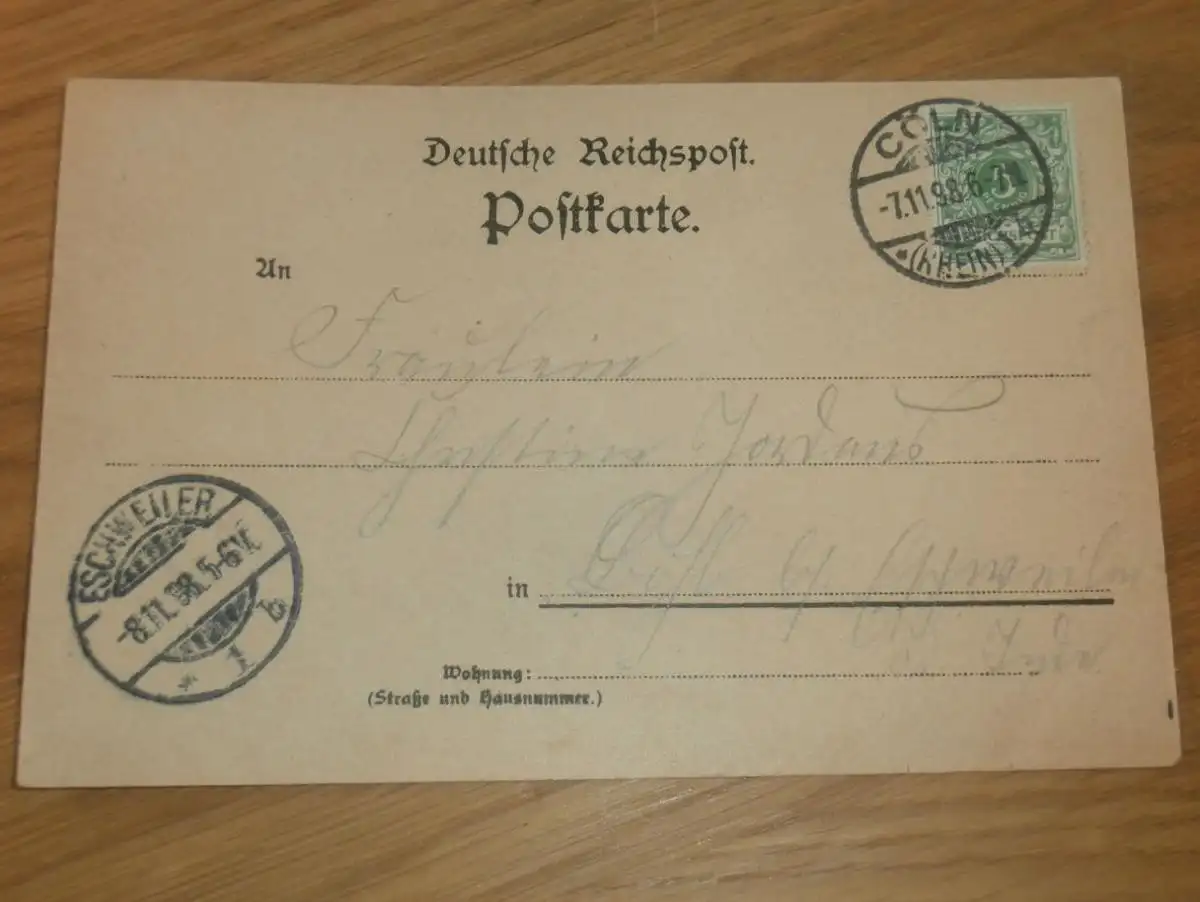 Deutsche Reichspost.
Postkarte.
CÖLN
-7.11.98.6-7N
(RHEIN) 1 b
An
Fräulein
Christine Jordans
ESCHWEILER
-8.11.98.5-6V.
* 1 b
in
Eschweiler
Wohnung:
(Straße und Hausnummer.)